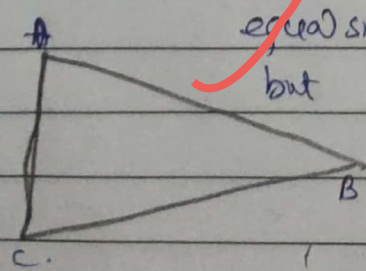 A
equal
but
B
C.